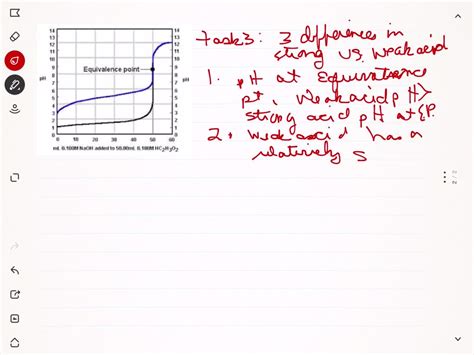 Task3: 3 differences in
strong vs. weak acid
1. pH at Equivalence
pt, Weak acid pH >
strong acid pH at EP.
2. weak acid has a
relatively s
14 14
13 13
12 12
11 11
10 10
9 9
Equivalence point
8 8
pH pH
7 7
6 6
5 5
4 4
3 3
2 2
1 1
0 10 20 30 40 50 60
mL 0.100M NaOH added to 50.00mL 0.100M HC2H3O2